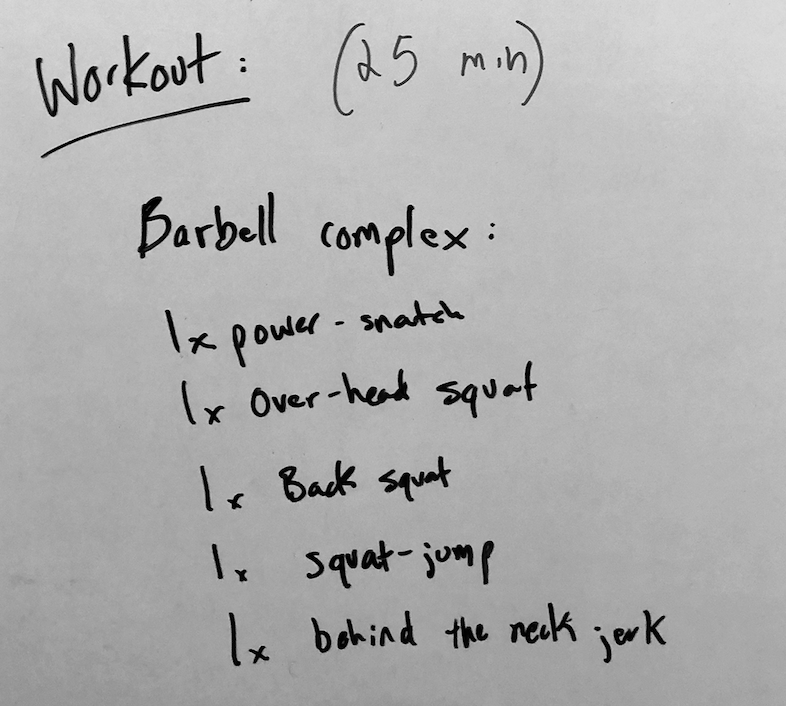 Workout: (25 min)
Barbell complex:
1x power-snatch
1x Over-head squat
1x Back squat
1x squat-jump
1x behind the neck jerk